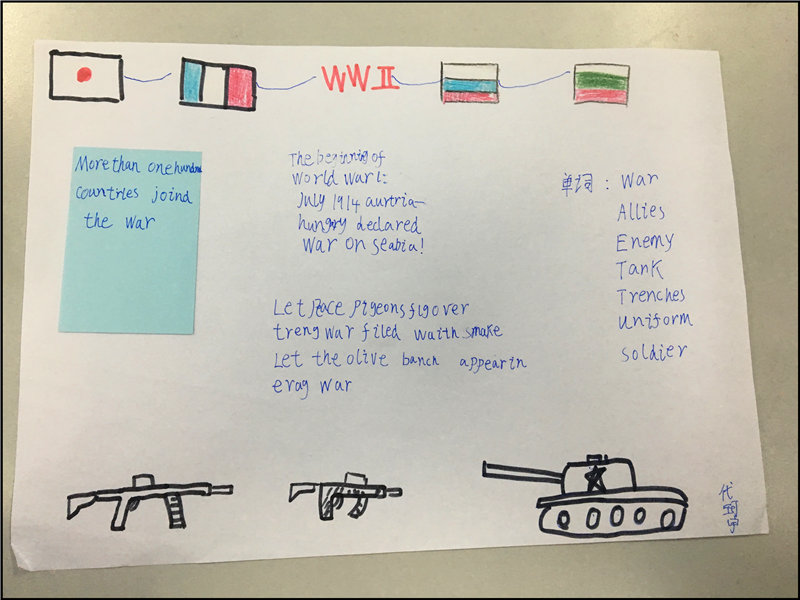 WW II
More than one hundred
countries joind
the war
The beginning of
World War I:
July 1914 aurtria-
hungry declared
war on seabia!
Let peace pigeons figover
treng war filed waith smake
Let the olive banch appear in
erag war
单词：War
Allies
Enemy
Tank
Trenches
uniform
soldier
代
珂
宇